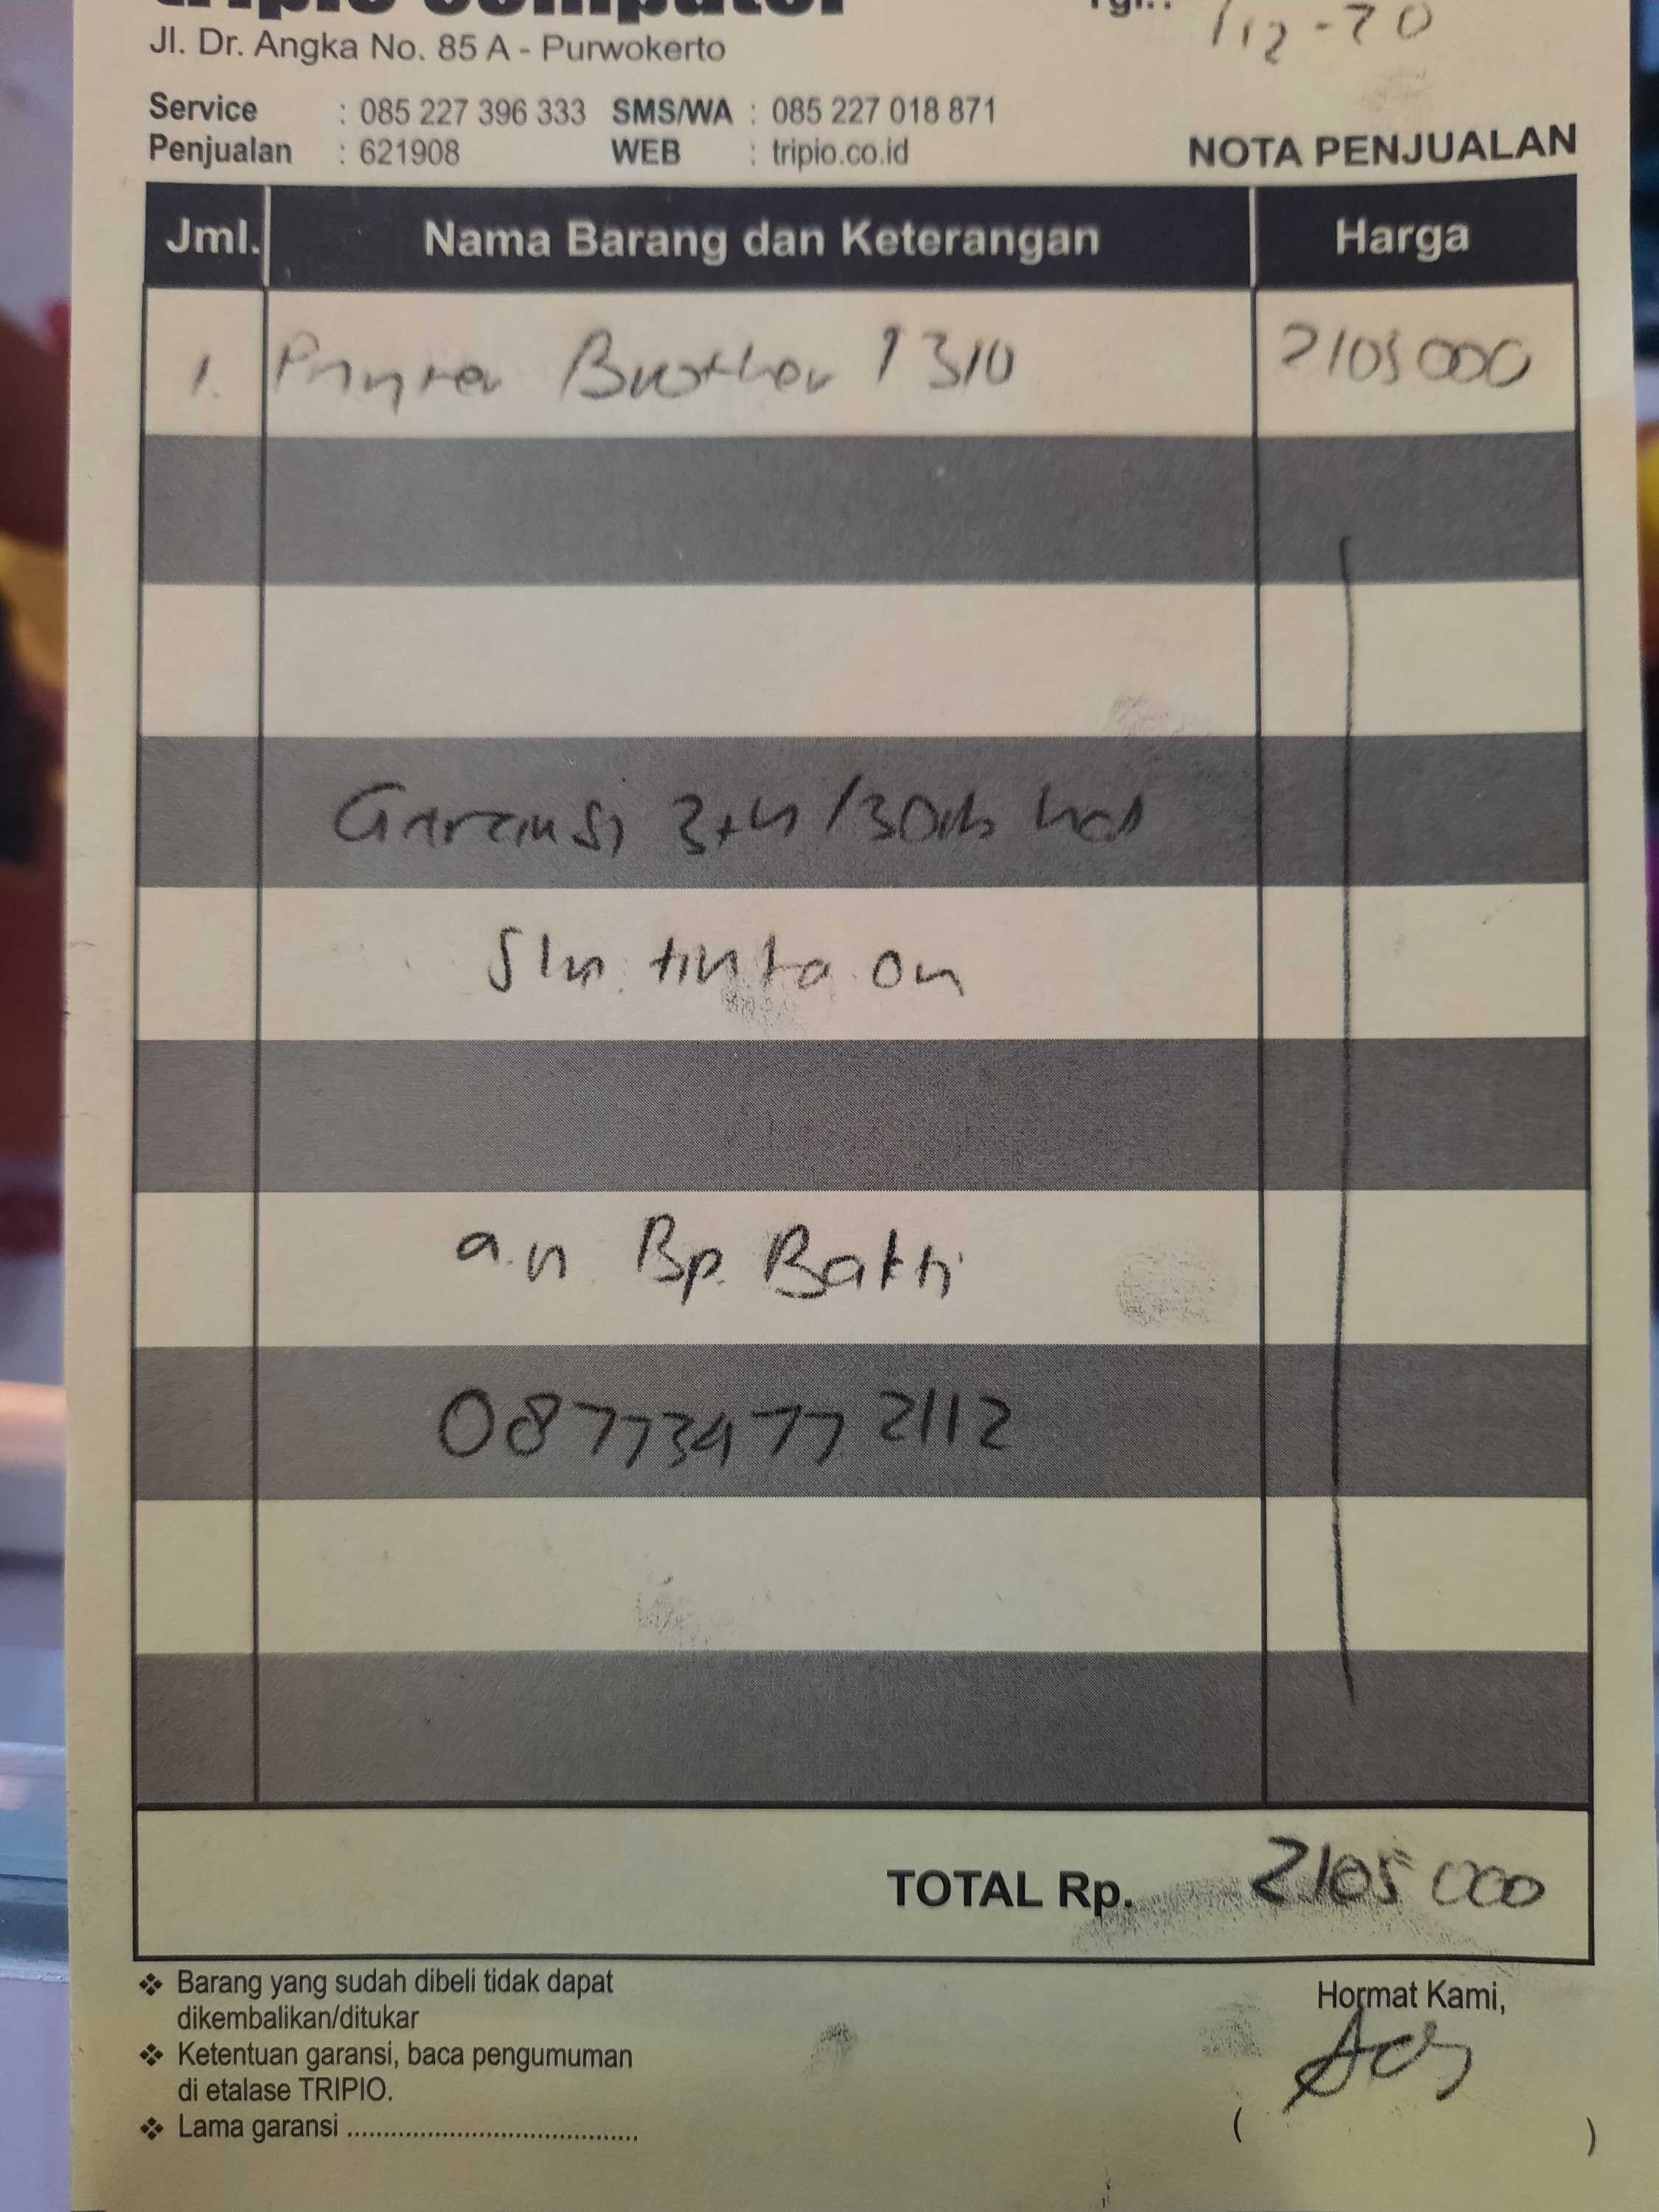 tripio computer
Tgl.: /12-20
Jl. Dr. Angka No. 85 A - Purwokerto
Service : 085 227 396 333 SMS/WA : 085 227 018 871
Penjualan : 621908 WEB : tripio.co.id
NOTA PENJUALAN
Jml. Nama Barang dan Keterangan Harga
1. Printer Brother T310 2105000
Garansi 3th/30rb
tinta on
a.n Bp. Bakti
087734772112
TOTAL Rp. 2105000
❖ Barang yang sudah dibeli tidak dapat
dikembalikan/ditukar
❖ Ketentuan garansi, baca pengumuman
di etalase TRIPIO.
❖ Lama garansi ........................................
Hormat Kami,
( )